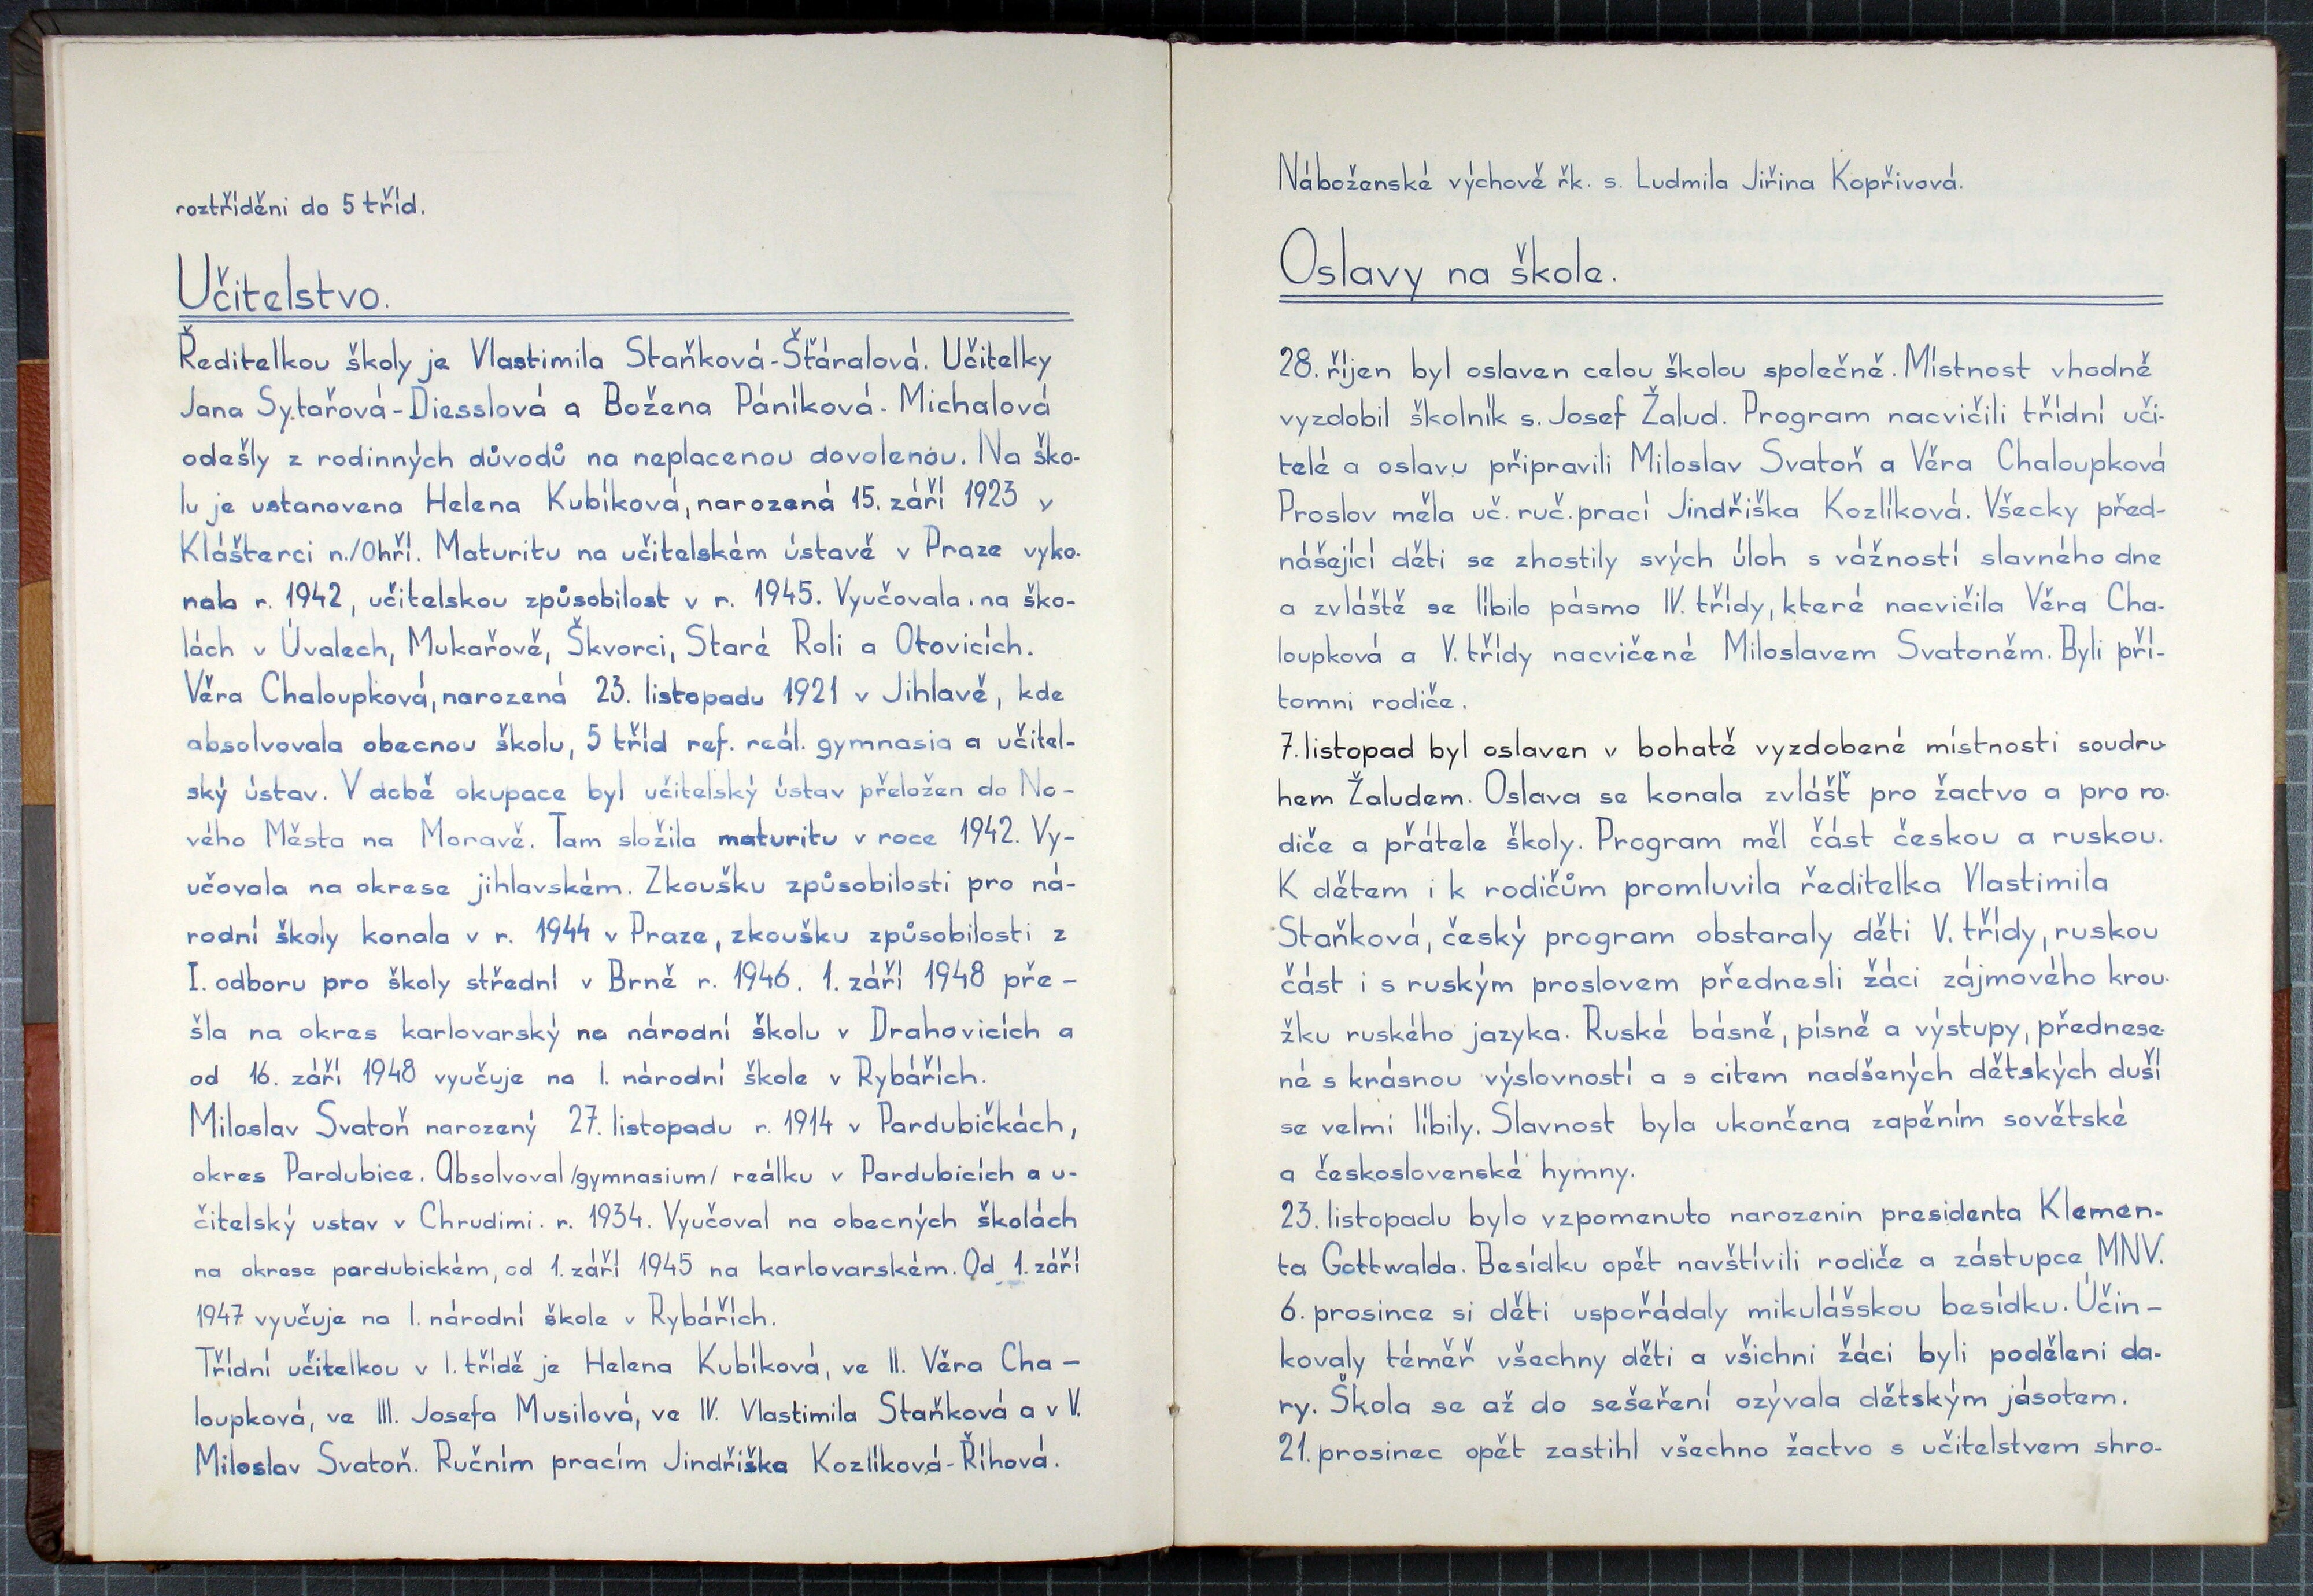 roztříděni do 5 tříd.
Učitelstvo.
Ředitelkou školy je Vlastimila Staňková-Šťáralová. Učitelky
Jana Sytařová-Diesslová a Božena Páníková-Michalová
odešly z rodinných důvodů na neplacenou dovolenou. Na ško-
lu je ustanovena Helena Kubíková, narozená 15. září 1923 v
Klášterci n./Ohří. Maturitu na učitelském ústavě v Praze vyko-
nala r. 1942, učitelskou způsobilost v r. 1945. Vyučovala na ško-
lách v Úvalech, Mukařově, Škvorci, Staré Roli a Otovicích.
Věra Chaloupková, narozená 23. listopadu 1921 v Jihlavě, kde
absolvovala obecnou školu, 5 tříd ref. reál. gymnasia a učitel-
ský ústav. V době okupace byl učitelský ústav přeložen do No-
vého Města na Moravě. Tam složila maturitu v roce 1942. Vy-
učovala na okrese jihlavském. Zkoušku způsobilosti pro ná-
rodní školy konala v r. 1944 v Praze, zkoušku způsobilosti z
I. odboru pro školy střední v Brně r. 1946. 1. září 1948 pře-
šla na okres karlovarský na národní školu v Drahovicích a
od 16. září 1948 vyučuje na I. národní škole v Rybářích.
Miloslav Svatoň narozený 27. listopadu r. 1914 v Pardubičkách,
okres Pardubice. Absolvoval /gymnasium/ reálku v Pardubicích a u-
čitelský ustav v Chrudimi. r. 1934. Vyučoval na obecných školách
na okrese pardubickém, od 1. září 1945 na karlovarském. Od 1. září
1947 vyučuje na I. národní škole v Rybářích.
Třídní učitelkou v I. třídě je Helena Kubíková, ve II. Věra Cha-
loupková, ve III. Josefa Musilová, ve IV. Vlastimila Staňková a v V.
Miloslav Svatoň. Ručním pracím Jindřiška Kozlíková-Říhová.
Náboženské výchově řk. s. Ludmila Jiřina Kopřivová.
Oslavy na škole.
28. říjen byl oslaven celou školou společně. Místnost vhodně
vyzdobil školník s. Josef Žalud. Program nacvičili třídní uči-
telé a oslavu připravili Miloslav Svatoň a Věra Chaloupková
Proslov měla uč. ruč. prací Jindřiška Kozlíková. Všecky před-
nášející děti se zhostily svých úloh s vážností slavného dne
a zvláště se líbilo pásmo IV. třídy, které nacvičila Věra Cha-
loupková a V. třídy nacvičené Miloslavem Svatoněm. Byli pří-
tomni rodiče.
7. listopad byl oslaven v bohatě vyzdobené místnosti soudru-
hem Žaludem. Oslava se konala zvlášť pro žactvo a pro ro-
diče a přátele školy. Program měl část českou a ruskou.
K dětem i k rodičům promluvila ředitelka Vlastimila
Staňková, český program obstaraly děti V. třídy, ruskou
část i s ruským proslovem přednesli žáci zájmového krou-
žku ruského jazyka. Ruské básně, písně a výstupy, přednese-
né s krásnou výslovností a s citem nadšených dětských duší
se velmi líbily. Slavnost byla ukončena zapěním sovětské
a československé hymny.
23. listopadu bylo vzpomenuto narozenin presidenta Klemen-
ta Gottwalda. Besídku opět navštívili rodiče a zástupce MNV.
6. prosince si děti uspořádaly mikulášskou besídku. Účin-
kovaly téměř všechny děti a všichni žáci byli poděleni da-
ry. Škola se až do sešeření ozývala dětským jásotem.
21. prosinec opět zastihl všechno žactvo s učitelstvem shro-